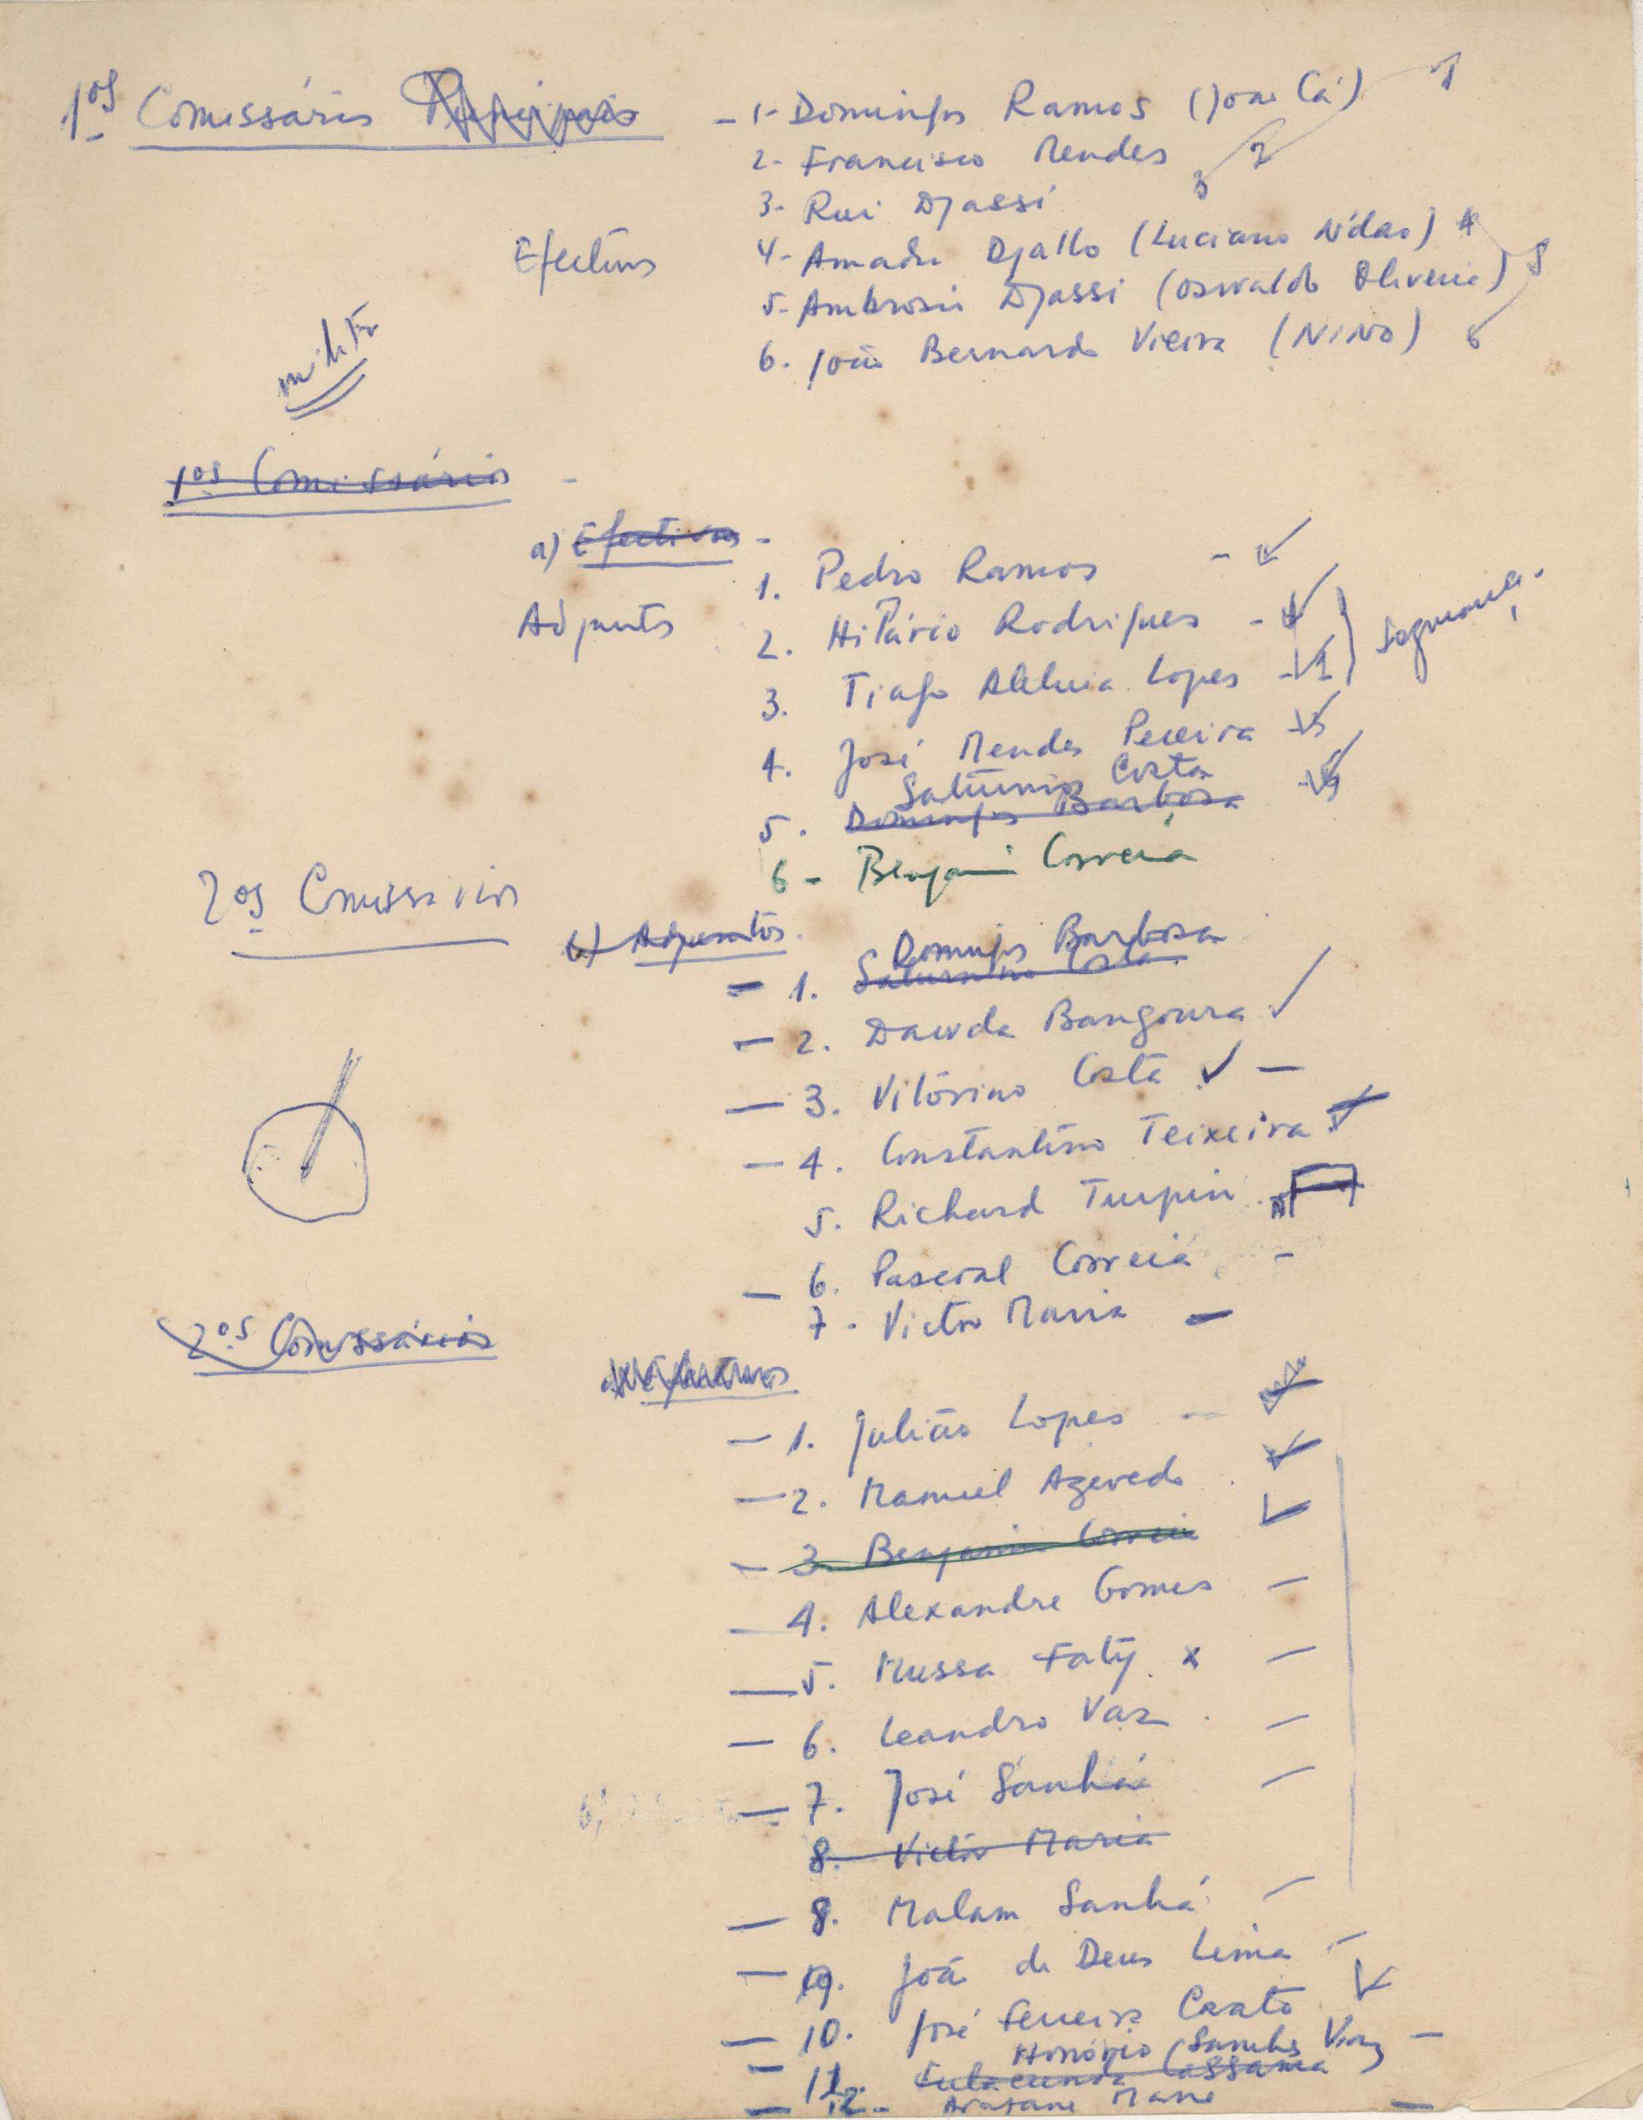 1os Comissários Principais - 1- Domingos Ramos (João Cá) 1
2- Francisco Mendes 2
3- Rui Djassi 3
Efectivos
4- Amadu Djallo (Luciano N'dao) 4
5- Ambrosio Djassi (Osvaldo Oliveira) 5
6. João Bernardo Vieira (NINO) 6
1os Comissários -
a) Efectivos -
1. Pedro Ramos -
Adjuntos
2. Hilário Rodrigues -
Segurança.
3. Tiago Aleluia Lopes -
4. José Mendes Pereira
Saturnino Costa
5. Domingos Barbosa
6 - Benjamim Correia
2os Comissários
b) Adjuntos.
Domingos Barbosa
- 1. Saturnino Costa
- 2. Dauda Bangoura
- 3. Vitorino Costa -
- 4. Constantino Teixeira
5. Richard Turpin
- 6. Pascoal Correia -
7. Victor Maria -
2os Comissários
Efectivos
- 1. Julião Lopes -
- 2. Manuel Azevedo
- 3. Benjamim Correia
- 4. Alexandre Gomes -
- 5. Mussa Faty x -
- 6. Leandro Vaz -
- 7. José Sanhá -
8. Victor Maria
- 8. Malam Sanhá -
- 9. João de Deus Lima -
- 10. José Ferreira Crato
Honório Sanches Vaz -
- 11. Fulacunda Cassama
- 12. Arafane Mane -